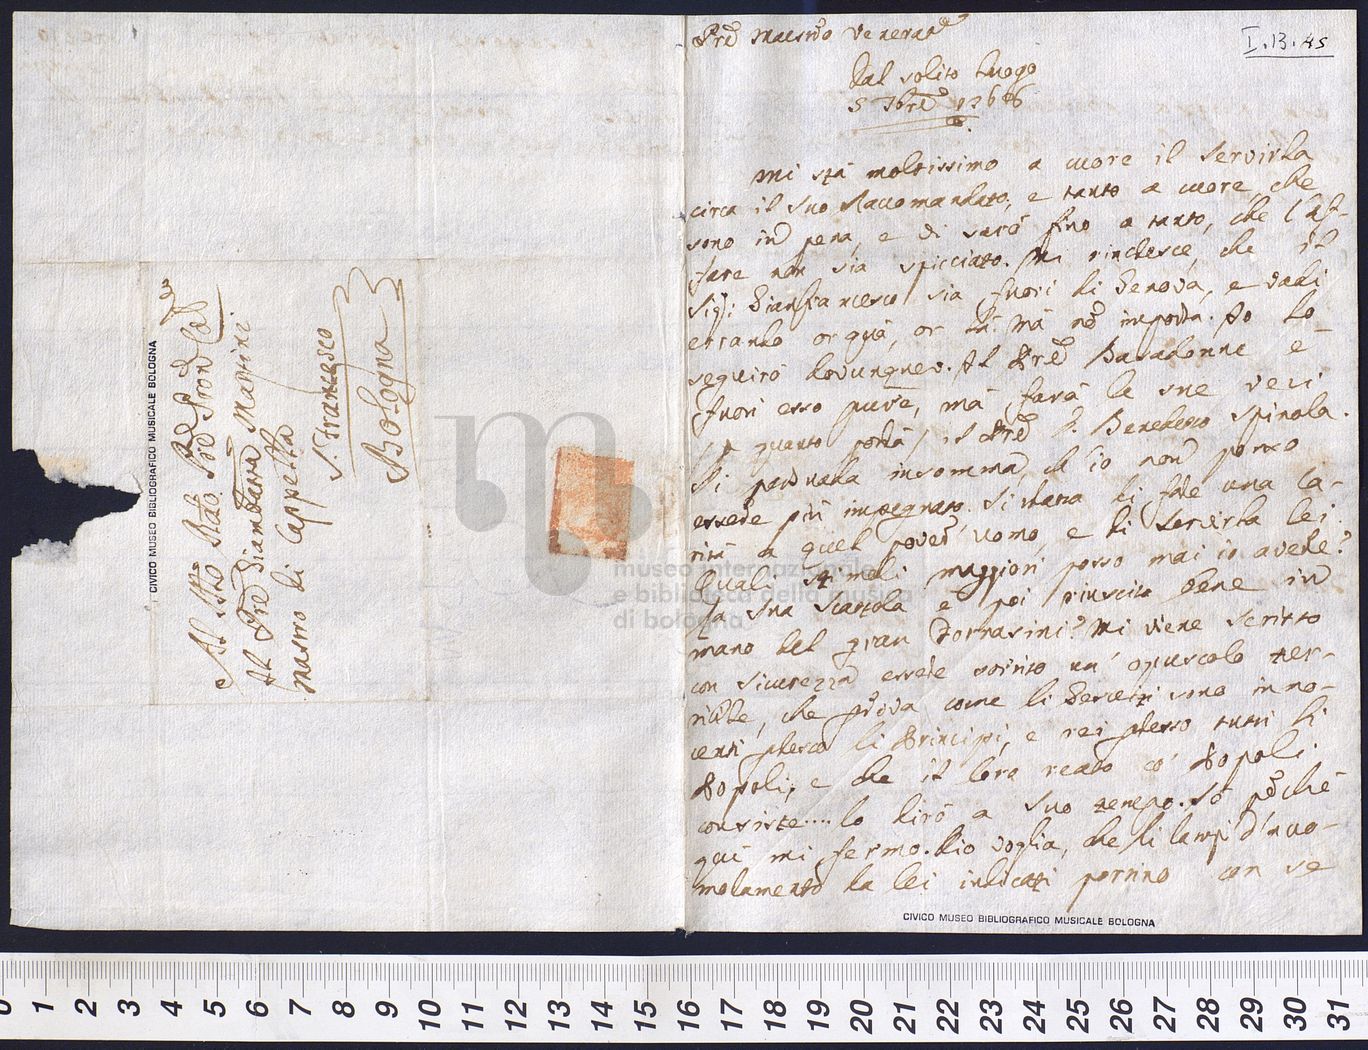 I.13.45
Pre Maestro Venerate
Dal solito Luogo
5 7bre
mi stà moltissimo a cuore il servirla
circa il suo Raccomandato, e tanto a cuore, che
sono in pena, e di sarò fino a tanto, che l'af-
fare non sia spicciato. Mi rincresce, che il
Sigr: Gianfrancesco sia fuori di Genova, e vadi
errando or quà, or là: mà nò importa. Io lo
seguirò dovunque. Il Pre Bavadonne è
fuori esso pure, mà farà le sue veci
quanto potrà il Pre D. Benedetto Spinola.
Si persuada insomma, ch'io non posso
essere più impegnato. Si tratta di fare una ca-
rità a quel pover'uomo, e di servirla lei.
Quali stimoli maggiori posso mai io avere?
La sua scattola è poi riuscita bene in
mano del gran Torrasini? Mi viene scritto
con sicurezza essere sortito un'opuscolo ter-
ribile, che prova come li Gesuiti sono inno-
centi presso li Principi, e rei presso tutti li
Popoli, e che il loro reato co' Popoli
consiste.... lo dirò a suo tempo. Sò perchè
quì mi fermo. Dio voglia, che li lampi d'annuo-
lamento da lei indicati portino con se
Al Molto Rdo Pre Pron Col
Al Pre Giambatta Martini
Mastro di Cappella
S. Francesco
Bologna
CIVICO MUSEO BIBLIOGRAFICO MUSICALE BOLOGNA
CIVICO MUSEO BIBLIOGRAFICO MUSICALE BOLOGNA
m
museo internazionale
e biblioteca della musica
di bologna
0 1 2 3 4 5 6 7 8 9 10 11 12 13 14 15 16 17 18 19 20 21 22 23 24 25 26 27 28 29 30 31